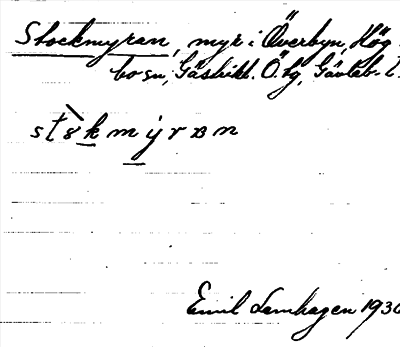 Stockmyran, myr i Överbyn, Hög
bo sn, Gästrikl. Ö. tg, Gävleb. l.
st8̀k mýrɒn
Emil Lamhagen 1930